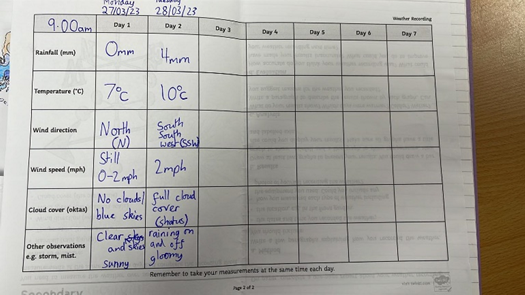 Monday
27/03/23
28/03/23
Weather Recording
9:00am
Day 1
Day 2
Day 3
Day 4
Day 5
Day 6
Day 7
Rainfall (mm)
0mm
4mm
Temperature (°C)
7°C
10°C
Wind direction
North
(N)
South
South
west (SSW)
Wind speed (mph)
Still
0-2mph
2mph
Cloud cover (oktas)
No clouds/
blue skies
full cloud
cover
(stratus)
Other observations
e.g. storm, mist.
Clear
and skies
sunny
raining on
and off
gloomy
Remember to take your measurements at the same time each day.
Page 2 of 2
Secondary